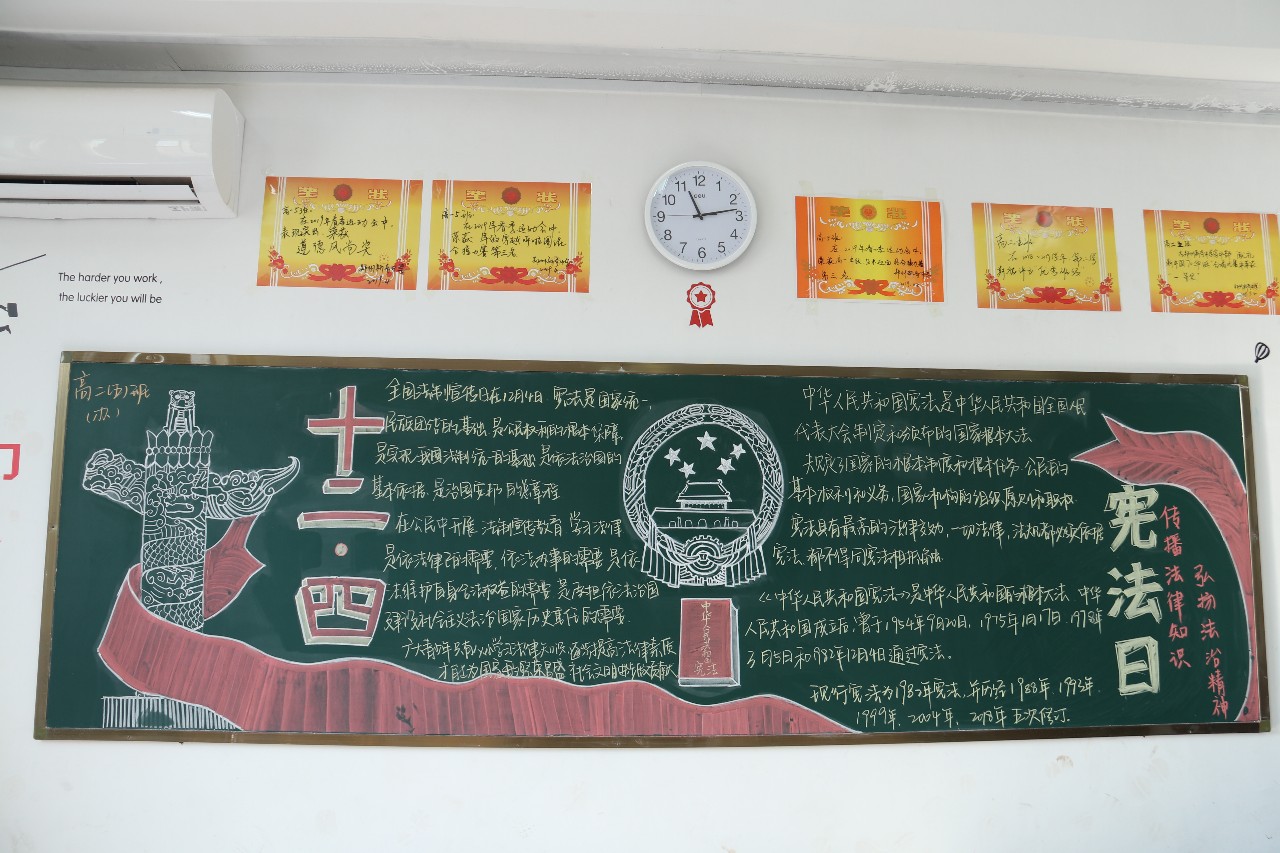 The harder you work ,
the luckier you will be
奖 状
高一5班:
在2019年春季运动会中,
表现突出 荣获
道德风尚奖
奖 状
高一5班:
奖 状
奖 状
奖 状
12
1
2
3
4
5
6
7
8
9
10
11
高二(五)班
(办)
十二·四
全国法制宣传日在12月4日 宪法是国家统一、
民族团结的基础 是公民权利的根本保障
是实现我国法制统一的基础 是依法治国的
基本依据 是治国安邦的总章程
在公民中开展 法制宣传教育 学习法律
是依法律己的需要 依法办事的需要 是依
法维护自身合法权益的需要 是承担依法治国
建设社会主义法治国家历史责任的需要
广大青少年只有从小学法
中华人民共和国宪法
中华人民共和国宪法是中华人民共和国全国人民
代表大会制定和颁布的国家根本大法
规定了国家的根本制度和根本任务 公民的
基本权利和义务, 国家机构的组织原则和职权
宪法具有最高的法律效力, 一切法律、法规都必须依据
宪法 都不得同宪法相抵触
《中华人民共和国宪法》是中华人民共和国的根本大法 中华
人民共和国成立后, 曾于1954年9月20日, 1975年1月17日 1978年
3月5日和1982年12月4日通过宪法.
现行宪法为1982年宪法, 并历经1988年、1993年、
1999年、2004年、2018年五次修订.
宪法日
传播法律知识
弘扬法治精神